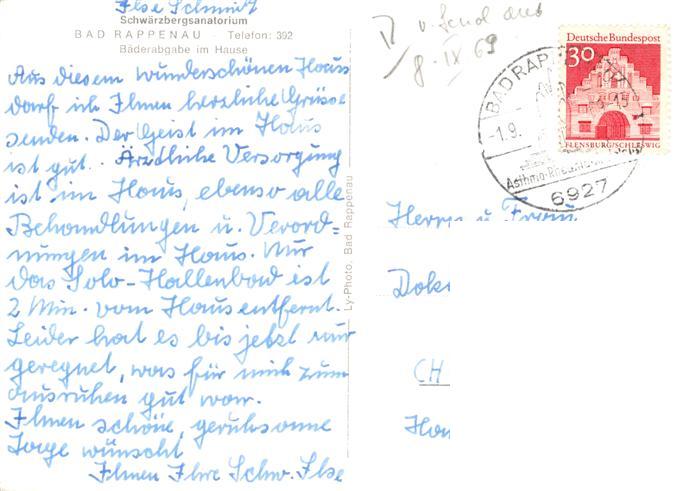 Ilse Schmidt
Schwärzbergsanatorium
BAD RAPPENAU · Telefon: 392
Bäderabgabe im Hause
Aus diesem wunderschönen Haus
darf ich Ihnen herzliche Grüsse
senden. Der Geist im Haus
ist gut. Ärztliche Versorgung
ist im Haus, ebenso alle
Behandlungen u. Verord=
nungen im Haus. Nur
das Solo-Hallenbad ist
2 Min. vom Haus entfernt.
Leider hat es bis jetzt nur
geregnet, was für mich zum
ausruhen gut war.
Ihnen schöne, geruhsame
Tage wünscht
Ihnen Ihre Schw. Ilse
Ly-Photo, Bad Rappenau
8·IX 69
Deutsche Bundespost
30
FLENSBURG/SCHLESWIG
BAD RAPP
-1.9.
-15
Asthma-Rheuma
6927
Herrn u Frau
Dok
CH
Hau